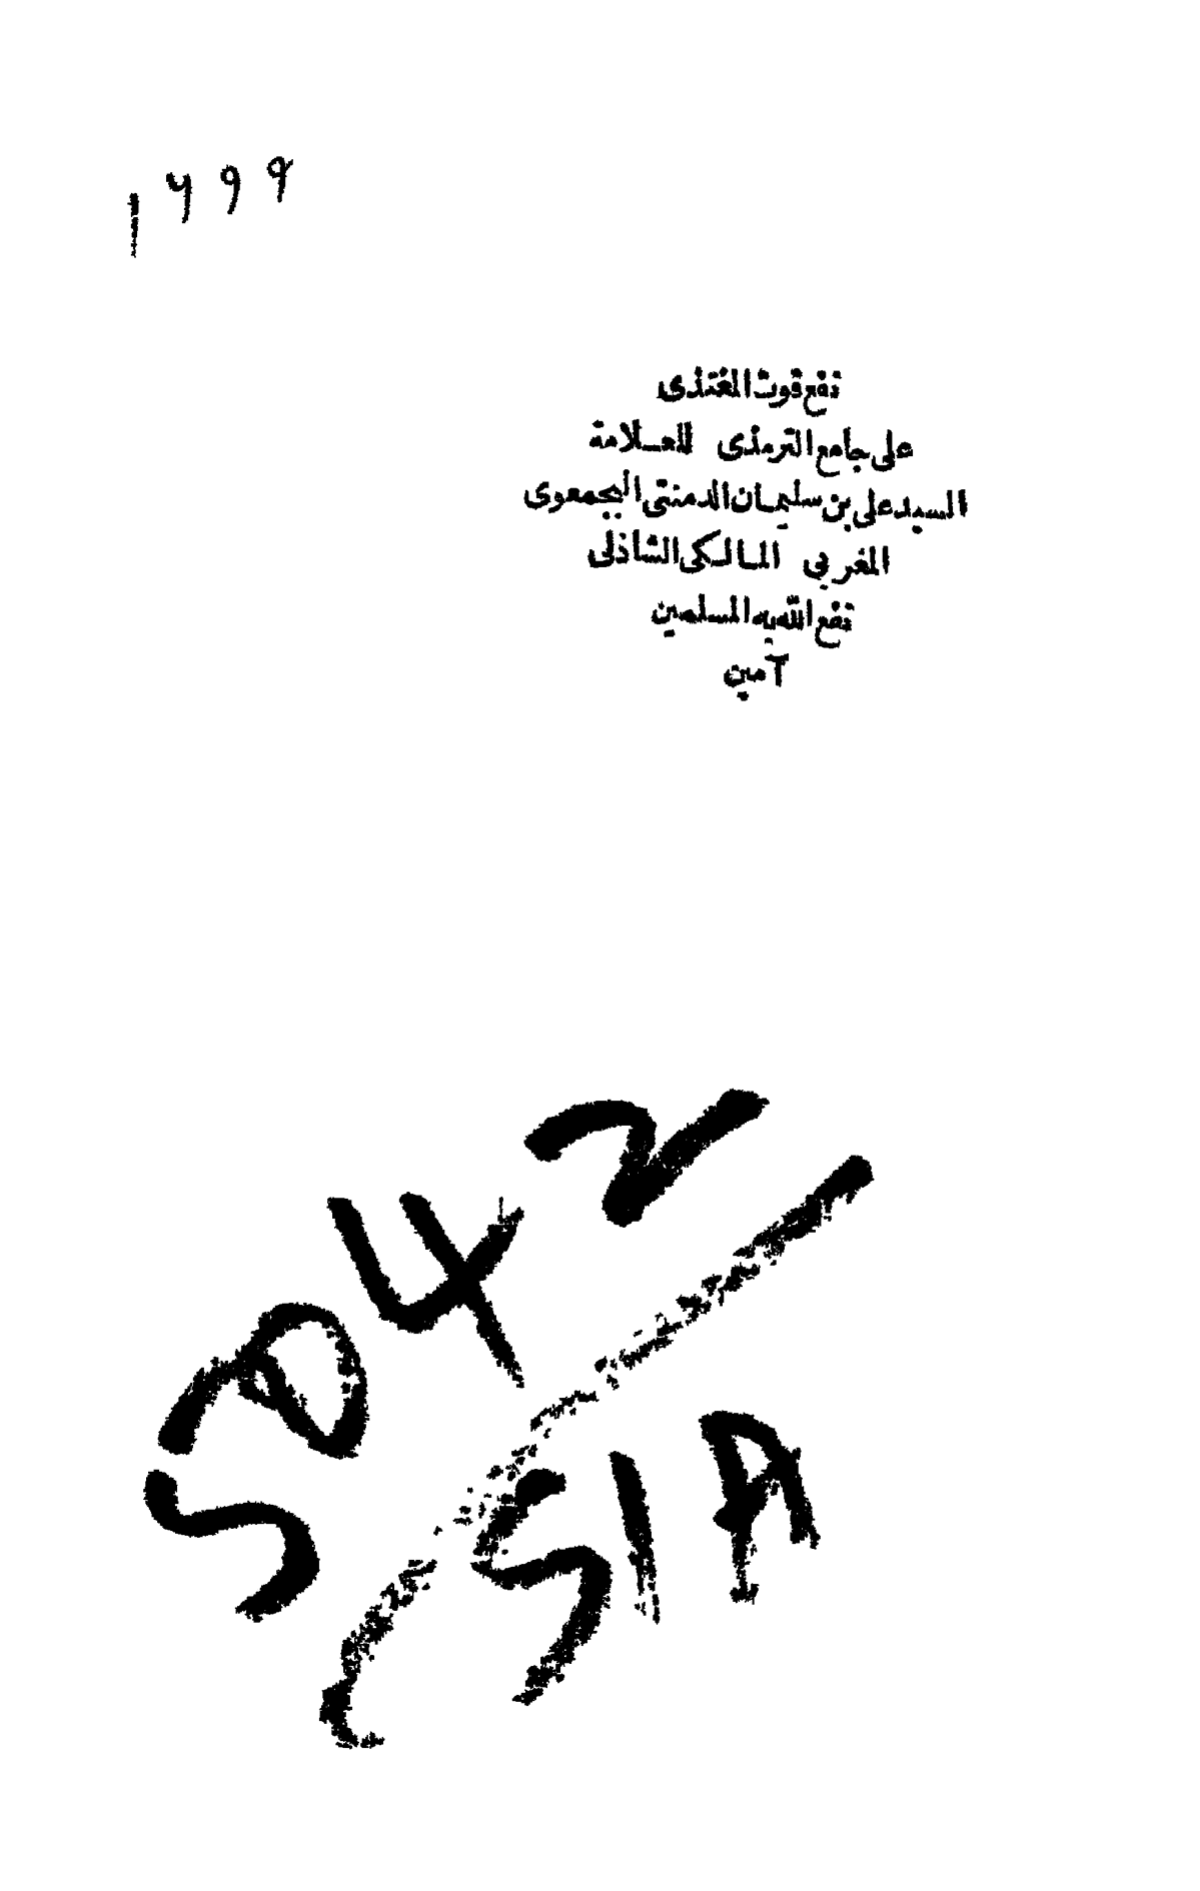 ١٦٩٩
نفع قوت المغتذى
على جامع الترمذى للعلامة
السيد على بن سليمان الدمنتى البجمعوى
المغربى المالكى الشاذلى
نفع الله به المسلمين
آمين
5042
SIA